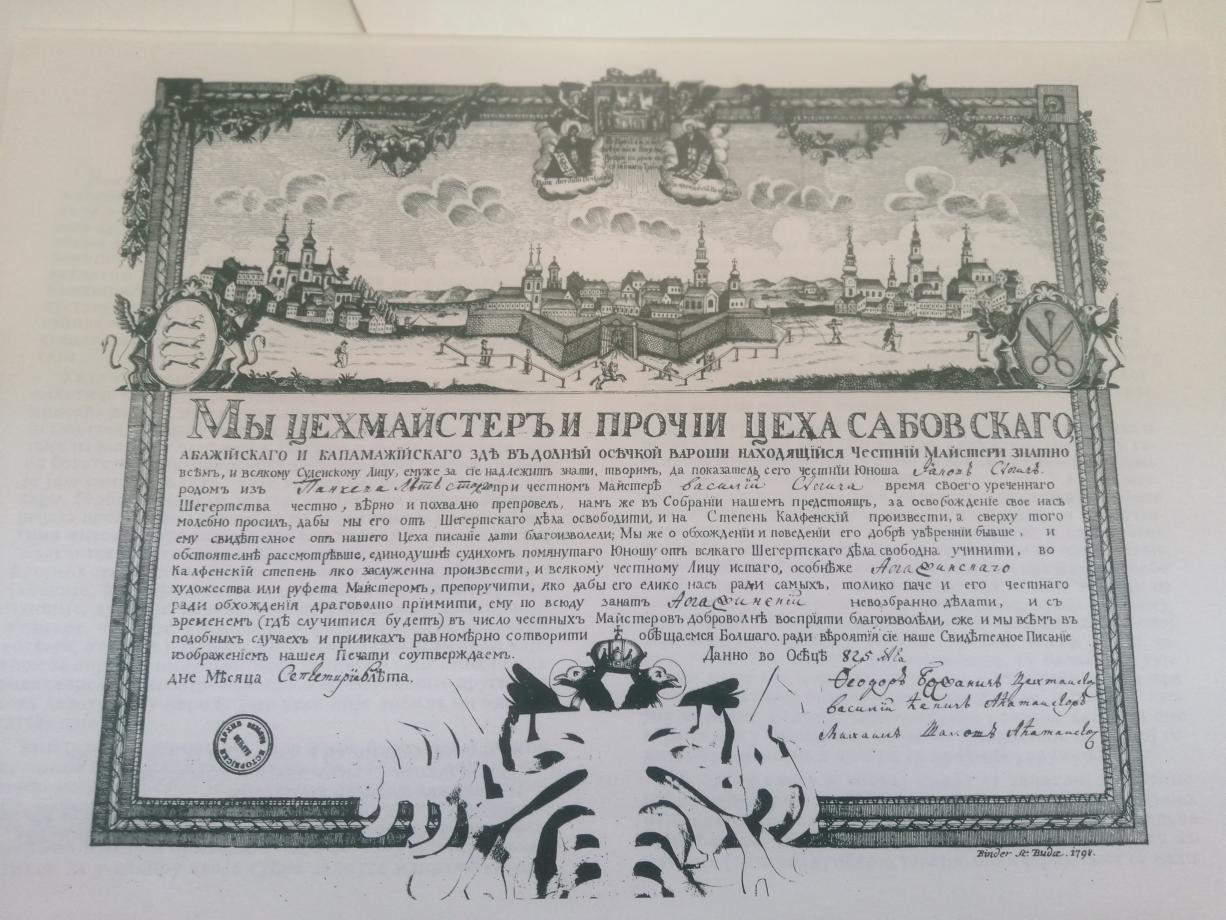 МЫ ЦЕХМАЙСТЕРЪ И ПРОЧІИ ЦЕХА САБОВСКАГО,
АБАЖІЙСКАГО И КАПАМАЖІЙСКАГО ЗДѢ ВЪ ДОЛНѢЙ ОСѢЧКОЙ ВАРОШИ НАХОДЯЩІЙСЯ ЧЕСТНІЙ МАЙСТЕРИ ЗНАТНО
всѣмъ, и всякому Суденскому Лицу, емуже за сіе надлежитъ знати, творимъ, да показатель сего честній Юноша
родомъ изъ при честномъ Майстерѣ василіи время своего уреченнаго
Шегертства честно, вѣрно и похвално препровелъ, намъ же въ Собраніи нашемъ предстоящъ, за освобожденіе свое насъ
молебно просилъ, дабы мы его отъ Шегертскаго дѣла освободити, и на Степень Калфенскій произвести, а сверху того
ему свидѣтелное отъ нашего Цеха писаніе дати благоизволели; Мы же о обхожденіи и поведеніи его добрѣ увѣренни бывше, и
обстоятелнѣ рассмотрѣвше, единодушнѣ судихомъ помянутаго Юношу отъ всякаго Шегертскаго дѣла свободна учинити, во
Калфенскій степень яко заслуженна произвести, и всякому честному Лицу истаго, особнѣже
художества или руфета Майстеромъ, препоручити, яко дабы его елико насъ ради самыхъ, толико паче и его честнаго
ради обхожденія драговолно пріимити, ему по всюду занатъ невозбранно дѣлати, и съ
временемъ (гдѣ случитися будетъ) въ число честныхъ Майстеровъ доброволнѣ воспріяти благоизволѣли, еже и мы всѣмъ въ
подобныхъ случаехъ и приликахъ равномѣрно сотворити обѣщаемся Болшаго ради вѣроятія сіе наше Свидѣтелное Писаніе
изображеніемъ нашея Печати соутверждаемъ. Данно во Осѣцѣ 825
дне Мѣсяца лѣта.
Ѳеодоръ
василій
Михаилъ
Binder sc. Budæ. 1798.